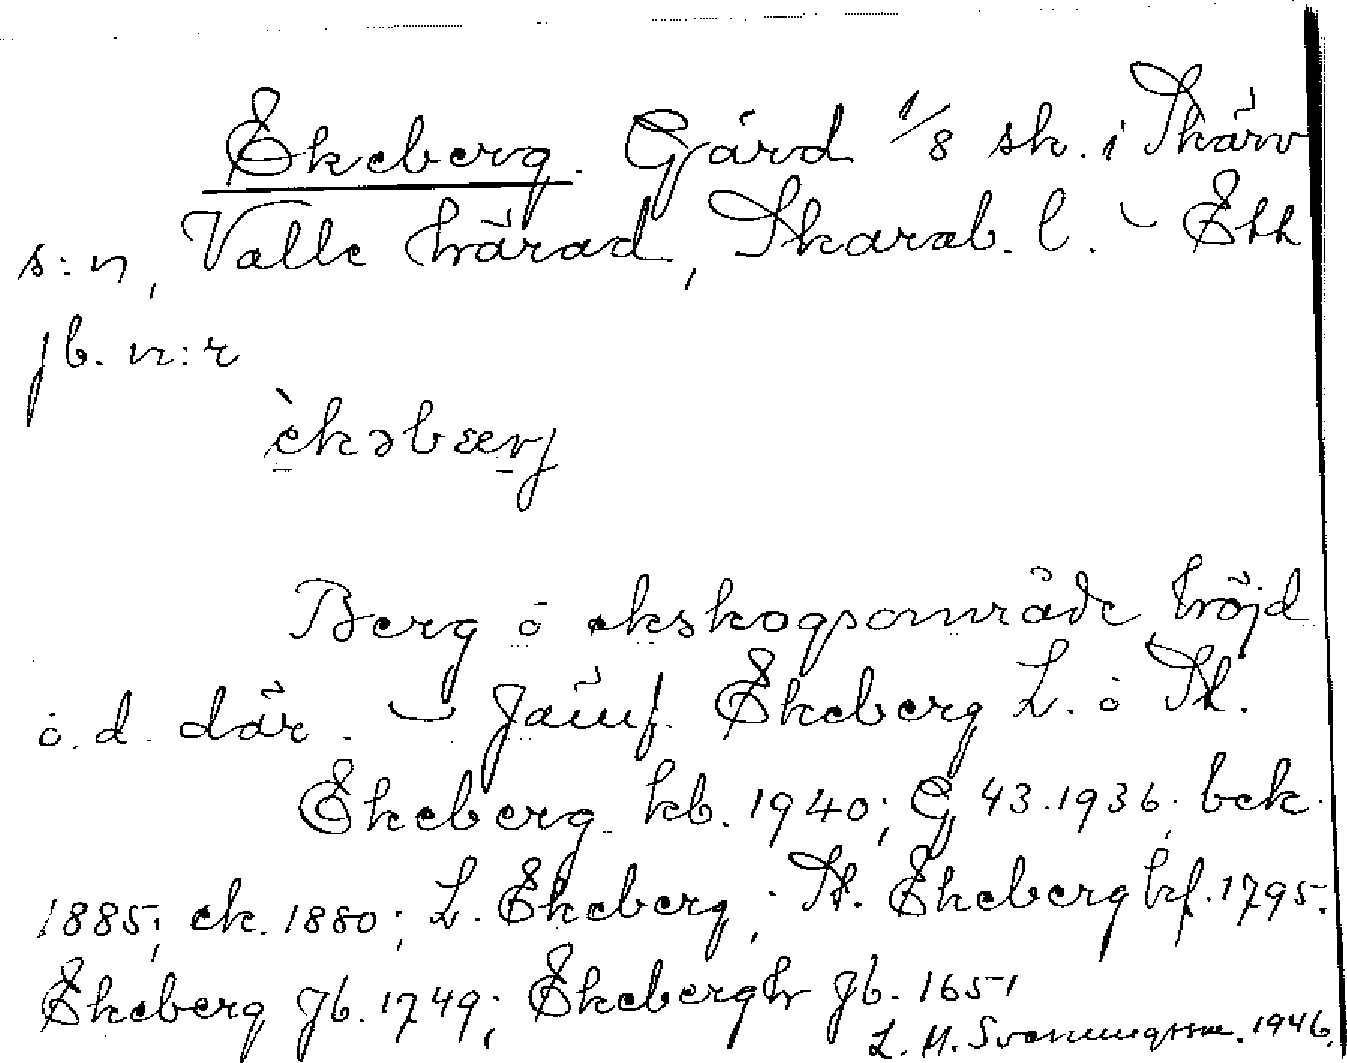 Ekeberg. Gård 1/8 sk. i Skärv
s:n, Valle härad, Skarab. l. – Ett
jb. n:r
èkəbærj
Berg o ekskogsområde höjd
o. d. där. – Jämf. Ekeberg L. o St.
Ekeberg kb. 1940; G 43.1936; bek.
1885; ek. 1880; L. Ekeberg, St. Ekeberg hf. 1795;
Ekeberg Jb. 1749; Ekebergh Jb. 1651
L. M. Svenungsson. 1946.